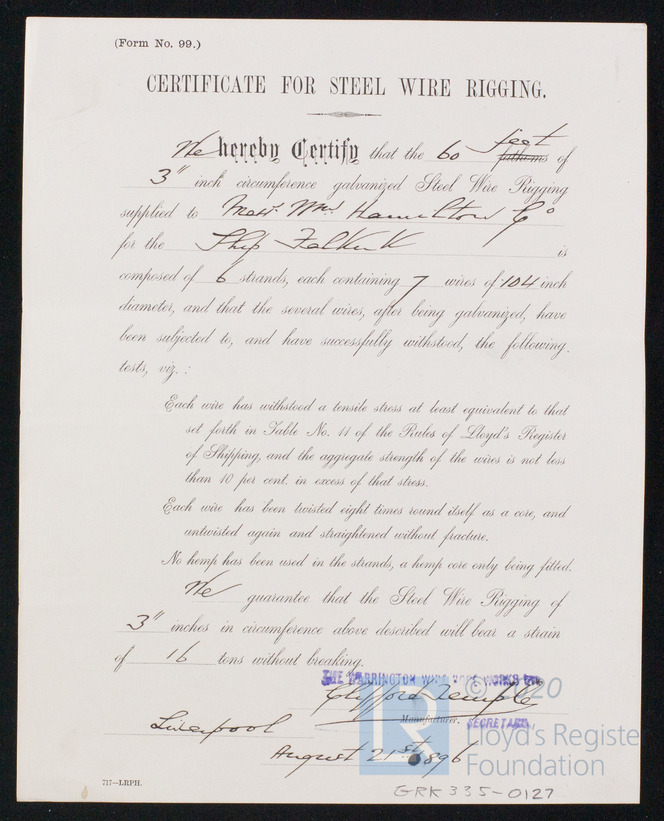 (Form No. 99.)
CERTIFICATE FOR STEEL WIRE RIGGING.
feet
We hereby Certify that the 60 fathoms of
3" inch circumference galvanized Steel Wire Rigging
supplied to Messrs. Wm. Hamilton & Co
for the Ship Falkirk is
composed of 6 strands, each containing 7 wires of .104 inch
diameter, and that the several wires, after being galvanized, have
been subjected to, and have successfully withstood, the following
tests, viz. :
Each wire has withstood a tensile stress at least equivalent to that
set forth in Table No. 11 of the Rules of Lloyd's Register
of Shipping, and the aggregate strength of the wires is not less
than 10 per cent. in excess of that stress.
Each wire has been twisted eight times round itself as a core, and
untwisted again and straightened without fracture.
No hemp has been used in the strands, a hemp core only being fitted.
We guarantee that the Steel Wire Rigging of
3" inches in circumference above described will bear a strain
of 16 tons without breaking.
THE WARRINGTON WIRE ROPE WORKS
Clifford Temple
Manufacturer. SECRETARY.
Liverpool
August 21st 1896
© 2020
LR
Lloyd's Register
Foundation
717—LRPH.
GRK335-0127